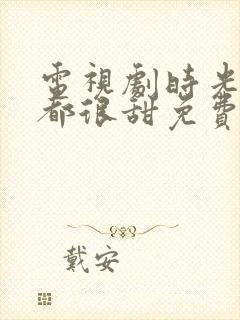 電視劇時光
都很甜免費
戴安